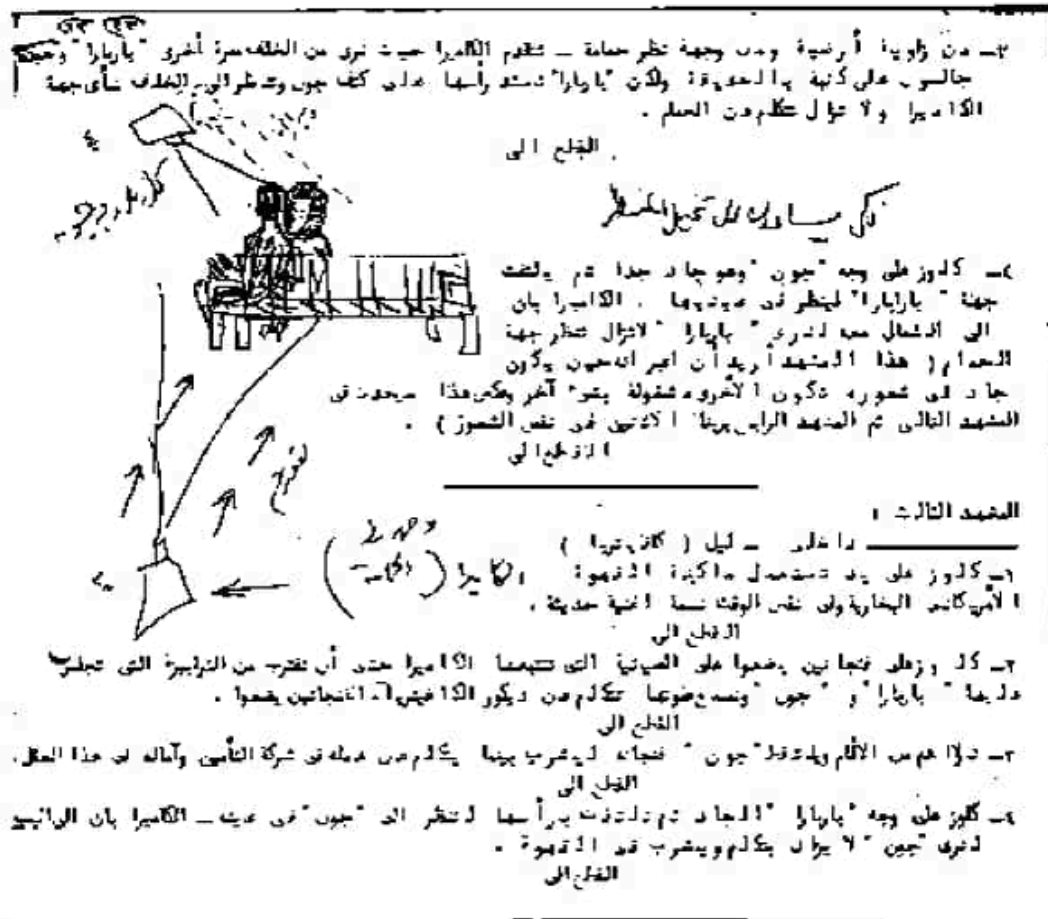 ٣ــ من زاوية أرضية ومن وجهة نظر حمامة ــ تتقدم الكاميرا حيث نرى من الخلف مرة أخرى "باربارا" وجون
جالسون على كنبة بالحديقة ولكن "باربارا" تسند رأسها على كتف جون وتنظر الى الخلف بأى جهة
الكاميرا ولا تزال تتكلم عن الحمام .
القطع الى
٤ــ كلوز على وجه "جون" وهو جاد جدا ثم يلتفت
جهة "بارابارا" لينظر فى عينيها . الكاميرا بان
الى الشمال معه لنرى "باربارا" لاتزال تنظر جهة
الحمام ( هذا المشهد أريد أن اعبر انه حين يكون
جاد فى شعوره تكون الأخرى مشغولة بشئ آخر وعكس هذا سيحدث فى
المشهد التالى ثم المشهد الرابع يرينا الاثنين فى نفس الشعور ) .
القطع الى
المشهد الثالث :
داخلى ــ ليل ( كافيتريا )
١ــ كلوز على يد تستعمل ماكينة القهوة
الأمريكانى البخارية وفى نفس الوقت نسمع اغنية حديثة .
القطع الى
٢ــ كلوز على فنجانين يضعوا على الصينية التى تتبعها الكاميرا حتى أن تقترب من الترابيزة التى تجلس
عليها "باربارا" و "جون" ونسمع صوتها تتكلم عن ديكور الكافيتريا الفنجانين يضعوا .
القطع الى
٣ــ كلاهم من الأمام ويلتقط "جون" فنجانه ليشرب بينما يتكلم عن عمله فى شركة التأمين وآماله فى هذا العمل.
القطع الى
٤ــ كلوز على وجه "باربارا" الجاد ثم تلتفت برأسها لتنظر الى "جون" فى عينه ــ الكاميرا بان الى اليمين
لنرى "جون" لا يزال يتكلم ويشرب فى القهوة .
القطع الى